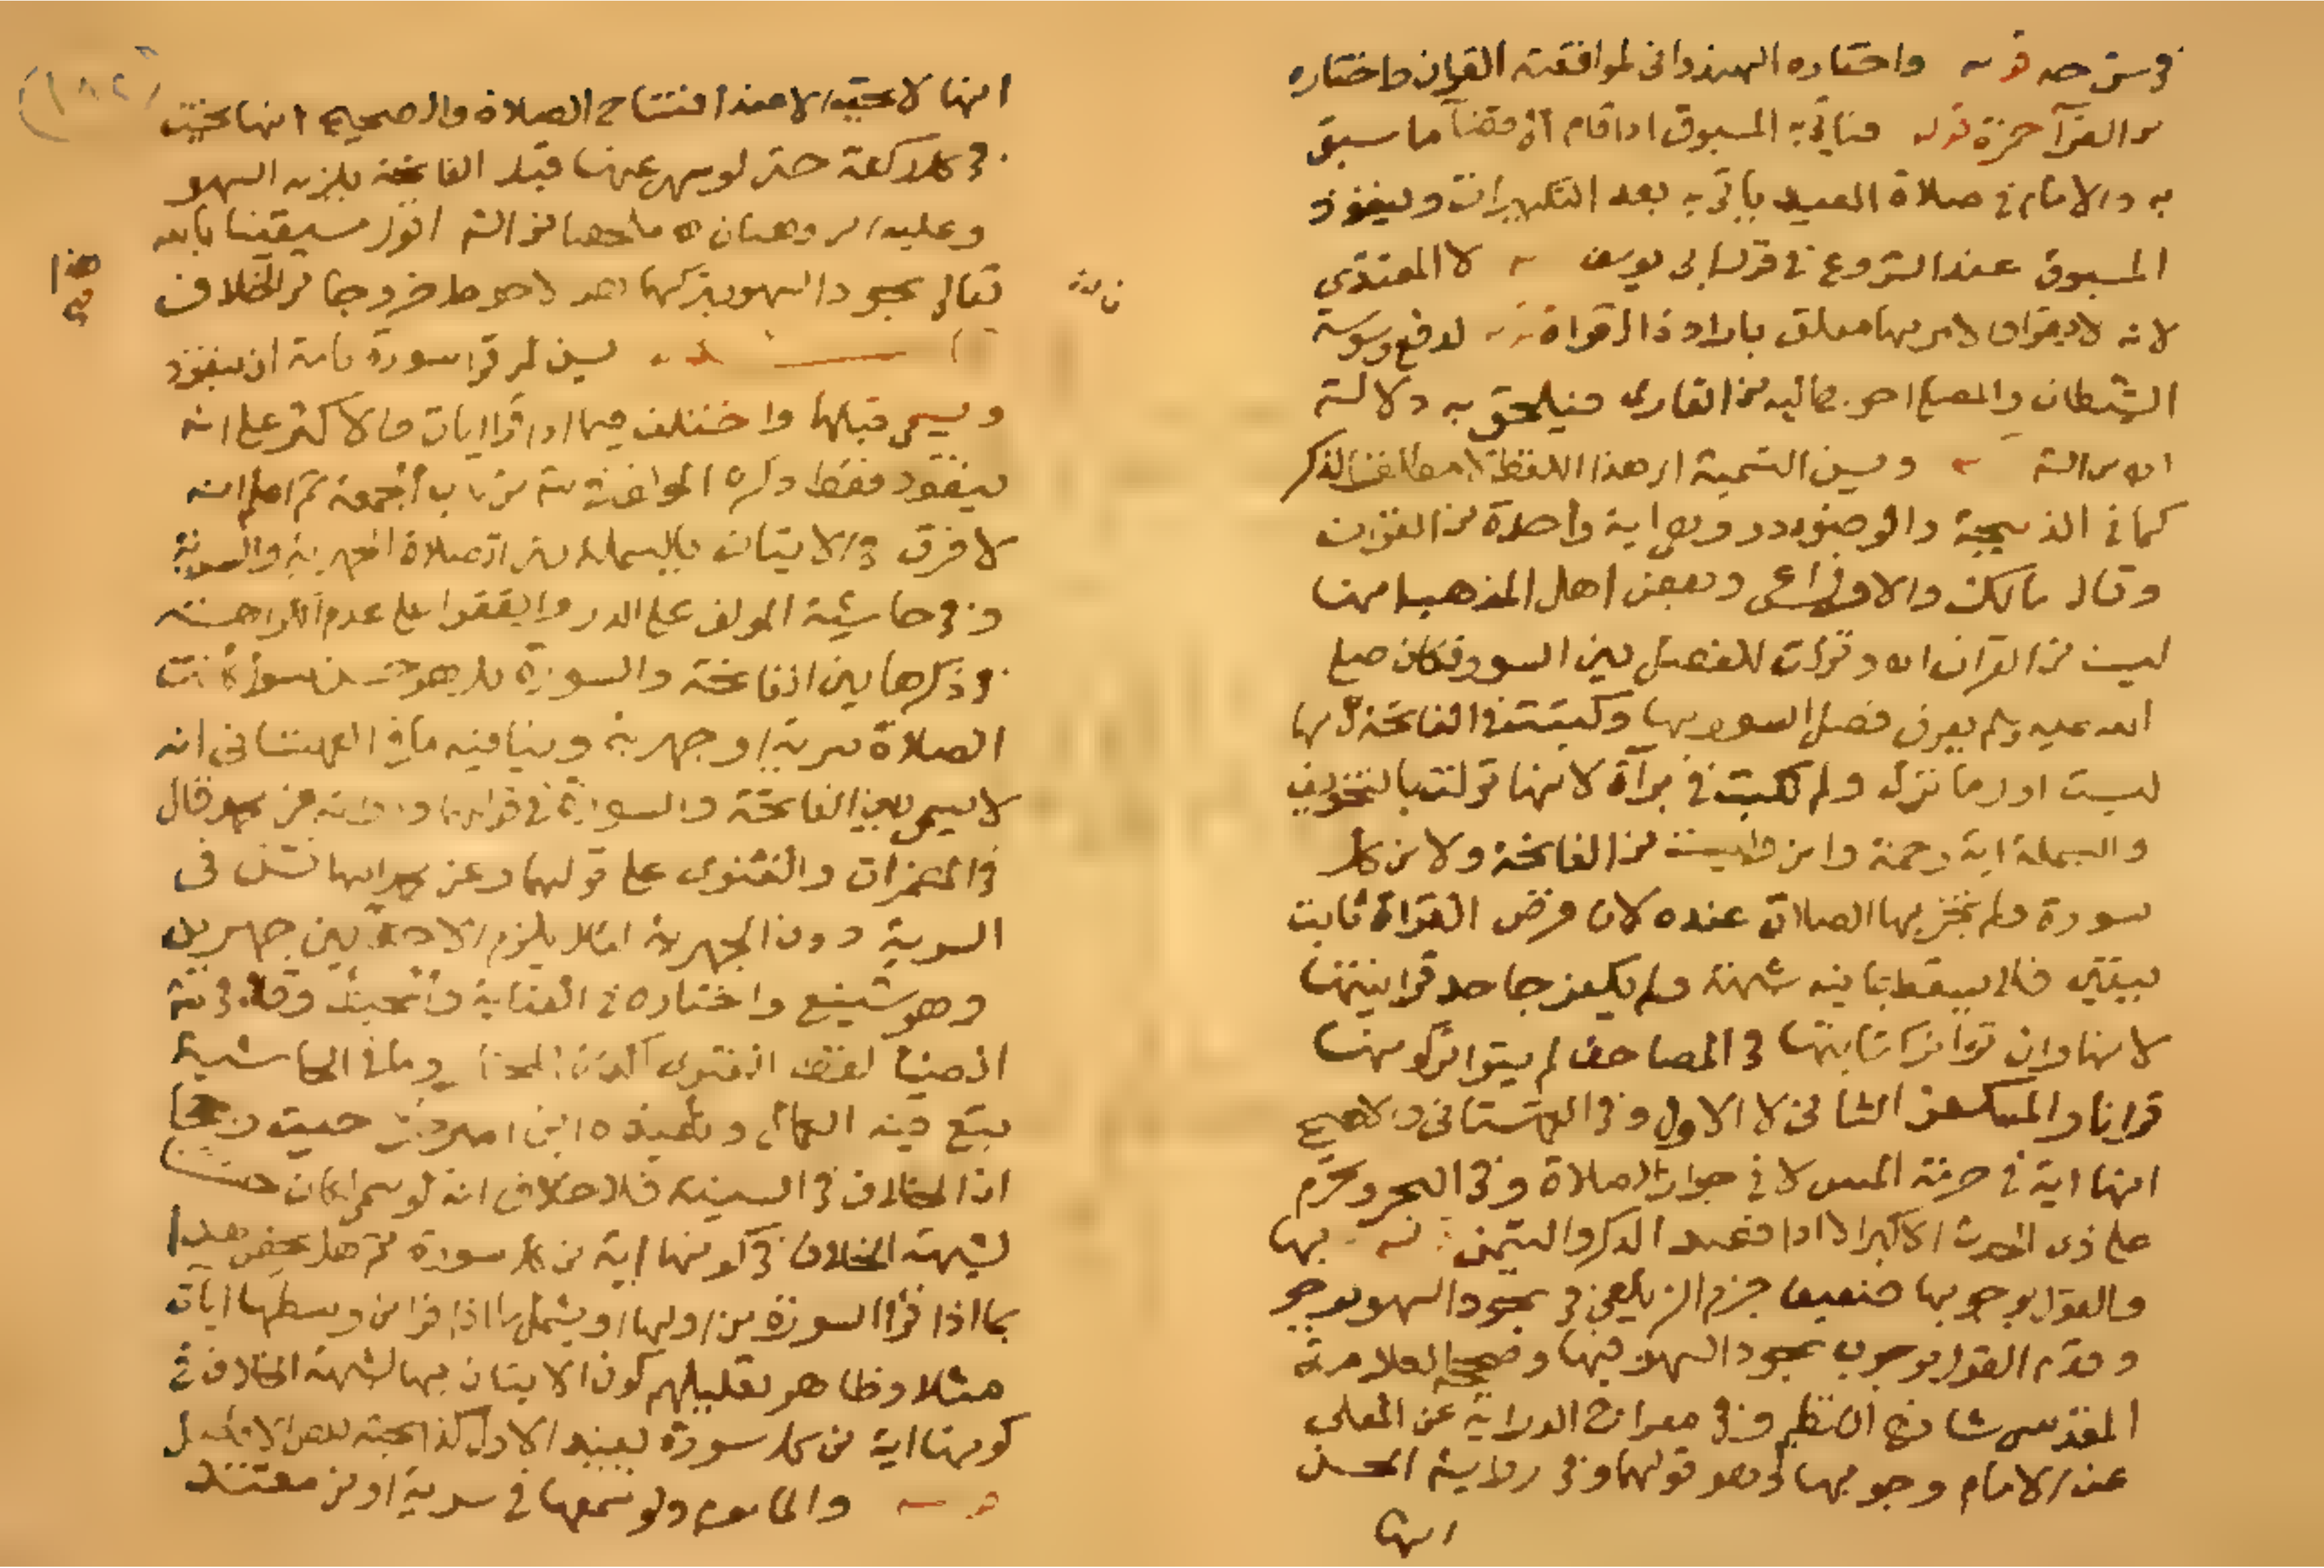 في شرحه قوله واختاره الهندواني لموافقته القرآن واختاره
من القرآ حمزة قوله فيأتي به المسبوق اذا قام الى قضآ ما سبق
به والامام في صلاة العيد يأتي به بعد التكبيرات ويتعوذ
المسبوق عند الشروع في قول ابي يوسف لا المقتدي
لانه لا يقرا والامر بها معلق بارادة القراة لدفع وسوسة
الشيطان والمصلي احوج اليه من القاري فيلحق به دلالة
ويسن التسمية اي هذا اللفظ لا مطلق الذكر
كما في الذبيحة والوضوء در وهي اية واحدة من القرآن
وقال مالك والاوزاعي وبعض اهل المذهب انها
ليست من القران انزلت للفصل بين السور فكان صلى
الله عليه وسلم يعرف فصل السور بها وكتبت في الفاتحة لانها
ليست اول ما نزل ولم تكتب في برآة لانها نزلت بالتخويف
والبسملة اية رحمة وامن وليست من الفاتحة ولا من كل
سورة ولم تجز بها الصلاة عنده لان فرض القراة ثابت
بيقين فلا يسقط بما فيه شبهة ولم يكفر جاحد قرانيتها
لانها وان تواتر كتابتها في المصاحف لم يتواتر كونها
قرانا والمكفر الثاني لا الاول وفي القهستاني والاصح
انها اية في حرمة المس لا في جواز الصلاة وفي البحر وتحرم
على ذي الحدث الاكبر الا اذا قصد الذكر والتيمن بها
والقول بوجوبها ضعيف جزم الزيلعي في سجود السهو بوجو
وقدم القول بوجوب سجود السهو فيها وصححه العلامة
المقدسي شارح النظم وفي معراج الدراية عن المعلى
عن الامام وجوبها وهو قولهما وفي رواية الحسن
انها
انها لا تجب الا عند افتتاح الصلاة والصحيح انها تجب
في كل ركعة حتى لو سهى عنها قبل الفاتحة يلزمه السهو
وعليه ابن وهبان
تعالى سجود السهو بتركها هو الاحوط خروجا من الخلاف
يسن لمن قرا سورة تامة ان يتعوذ
ويسمي قبلها واختلف فيما اذا قرا ايات والاكثر على انه
يتعوذ فقط ذكره المولف من باب الجمعة ثم اعلم انه
لا فرق في الاتيان بالبسملة بين الصلاة الجهرية والسرية
وفي حاشية المولف على الدرر واتفقوا على عدم الكراهة
في ذكرها بين الفاتحة والسورة بل هو حسن سواء كانت
الصلاة سرية او جهرية وينافيه ما في القهستاني انه
لا يسمي بين الفاتحة والسورة في قولهما وفي رواية عن محمد قال
في المضمرات والفتوى على قولهما وعن محمد انها تسن في
السرية دون الجهرية لئلا يلزم الاخفاء بين جهرين
وهو شنيع واختاره في العناية والمحيط وقال في شرح
الضيا لفظ الفتوى آكد من المختار وما في الحاشية
يتبع فيه الكمال وتلميذه ابن امير حاج حيث رجحا
ان الخلاف في السنية فلا خلاف انه لو سمى لكان حسنا
لشبهة الخلاف في كونها اية من كل سورة ثم هل يخص هذا
بما اذا قرا السورة من اولها او يشمل ما اذا قرا من وسطها ايات
مثلا وظاهر تعليلهم كون الاتيان بها لشبهة الخلاف في
كونها اية من كل سورة يفيد الاول كذا بحثه بعض الافاضل
والماموم ولو سمعها في سرية او من مقتد
هذا